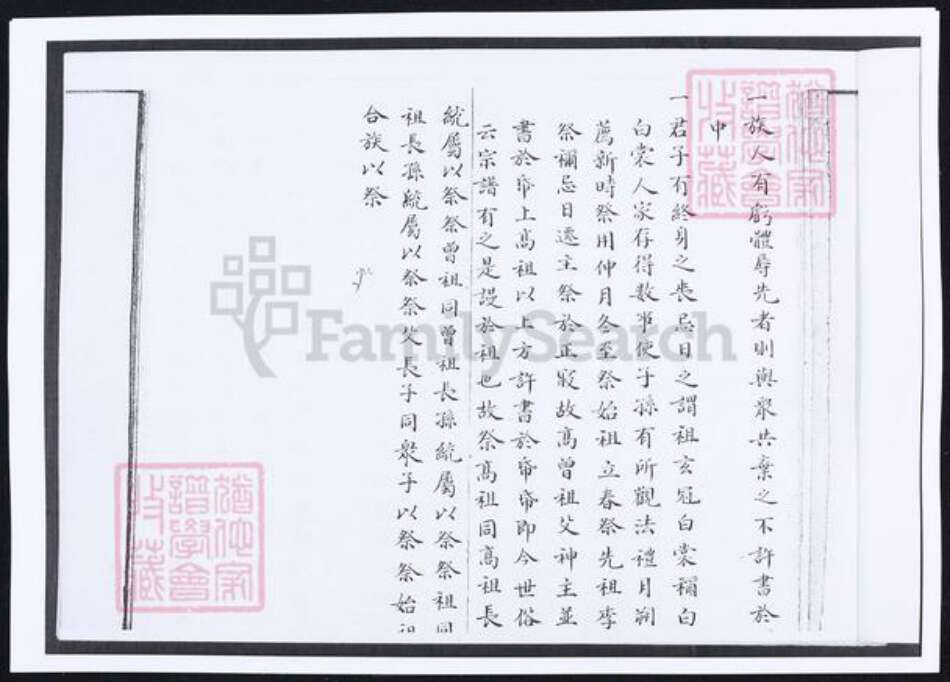 一族人有虧體辱先者則與眾共棄之不許書於
中
一君子有終身之喪忌日之謂祖玄冠白裳禰白
白裳人家存得数事使子孫有所觀法禮月朔
薦新時祭用仲月冬至祭始祖立春祭先祖季
祭禰忌日遷主祭於正寢故高曾祖父神主並
書於帝上高祖以上方許書於帝帝即今世俗
云宗譜有之是謾於祖也故祭高祖同高祖長
統屬以祭祭曾祖同曾祖長孫統屬以祭祭祖同
祖長孫統屬以祭祭父長子同衆子以祭祭始祖
合族以祭
譜學會
收藏
譜學會
收藏
FamilySearch